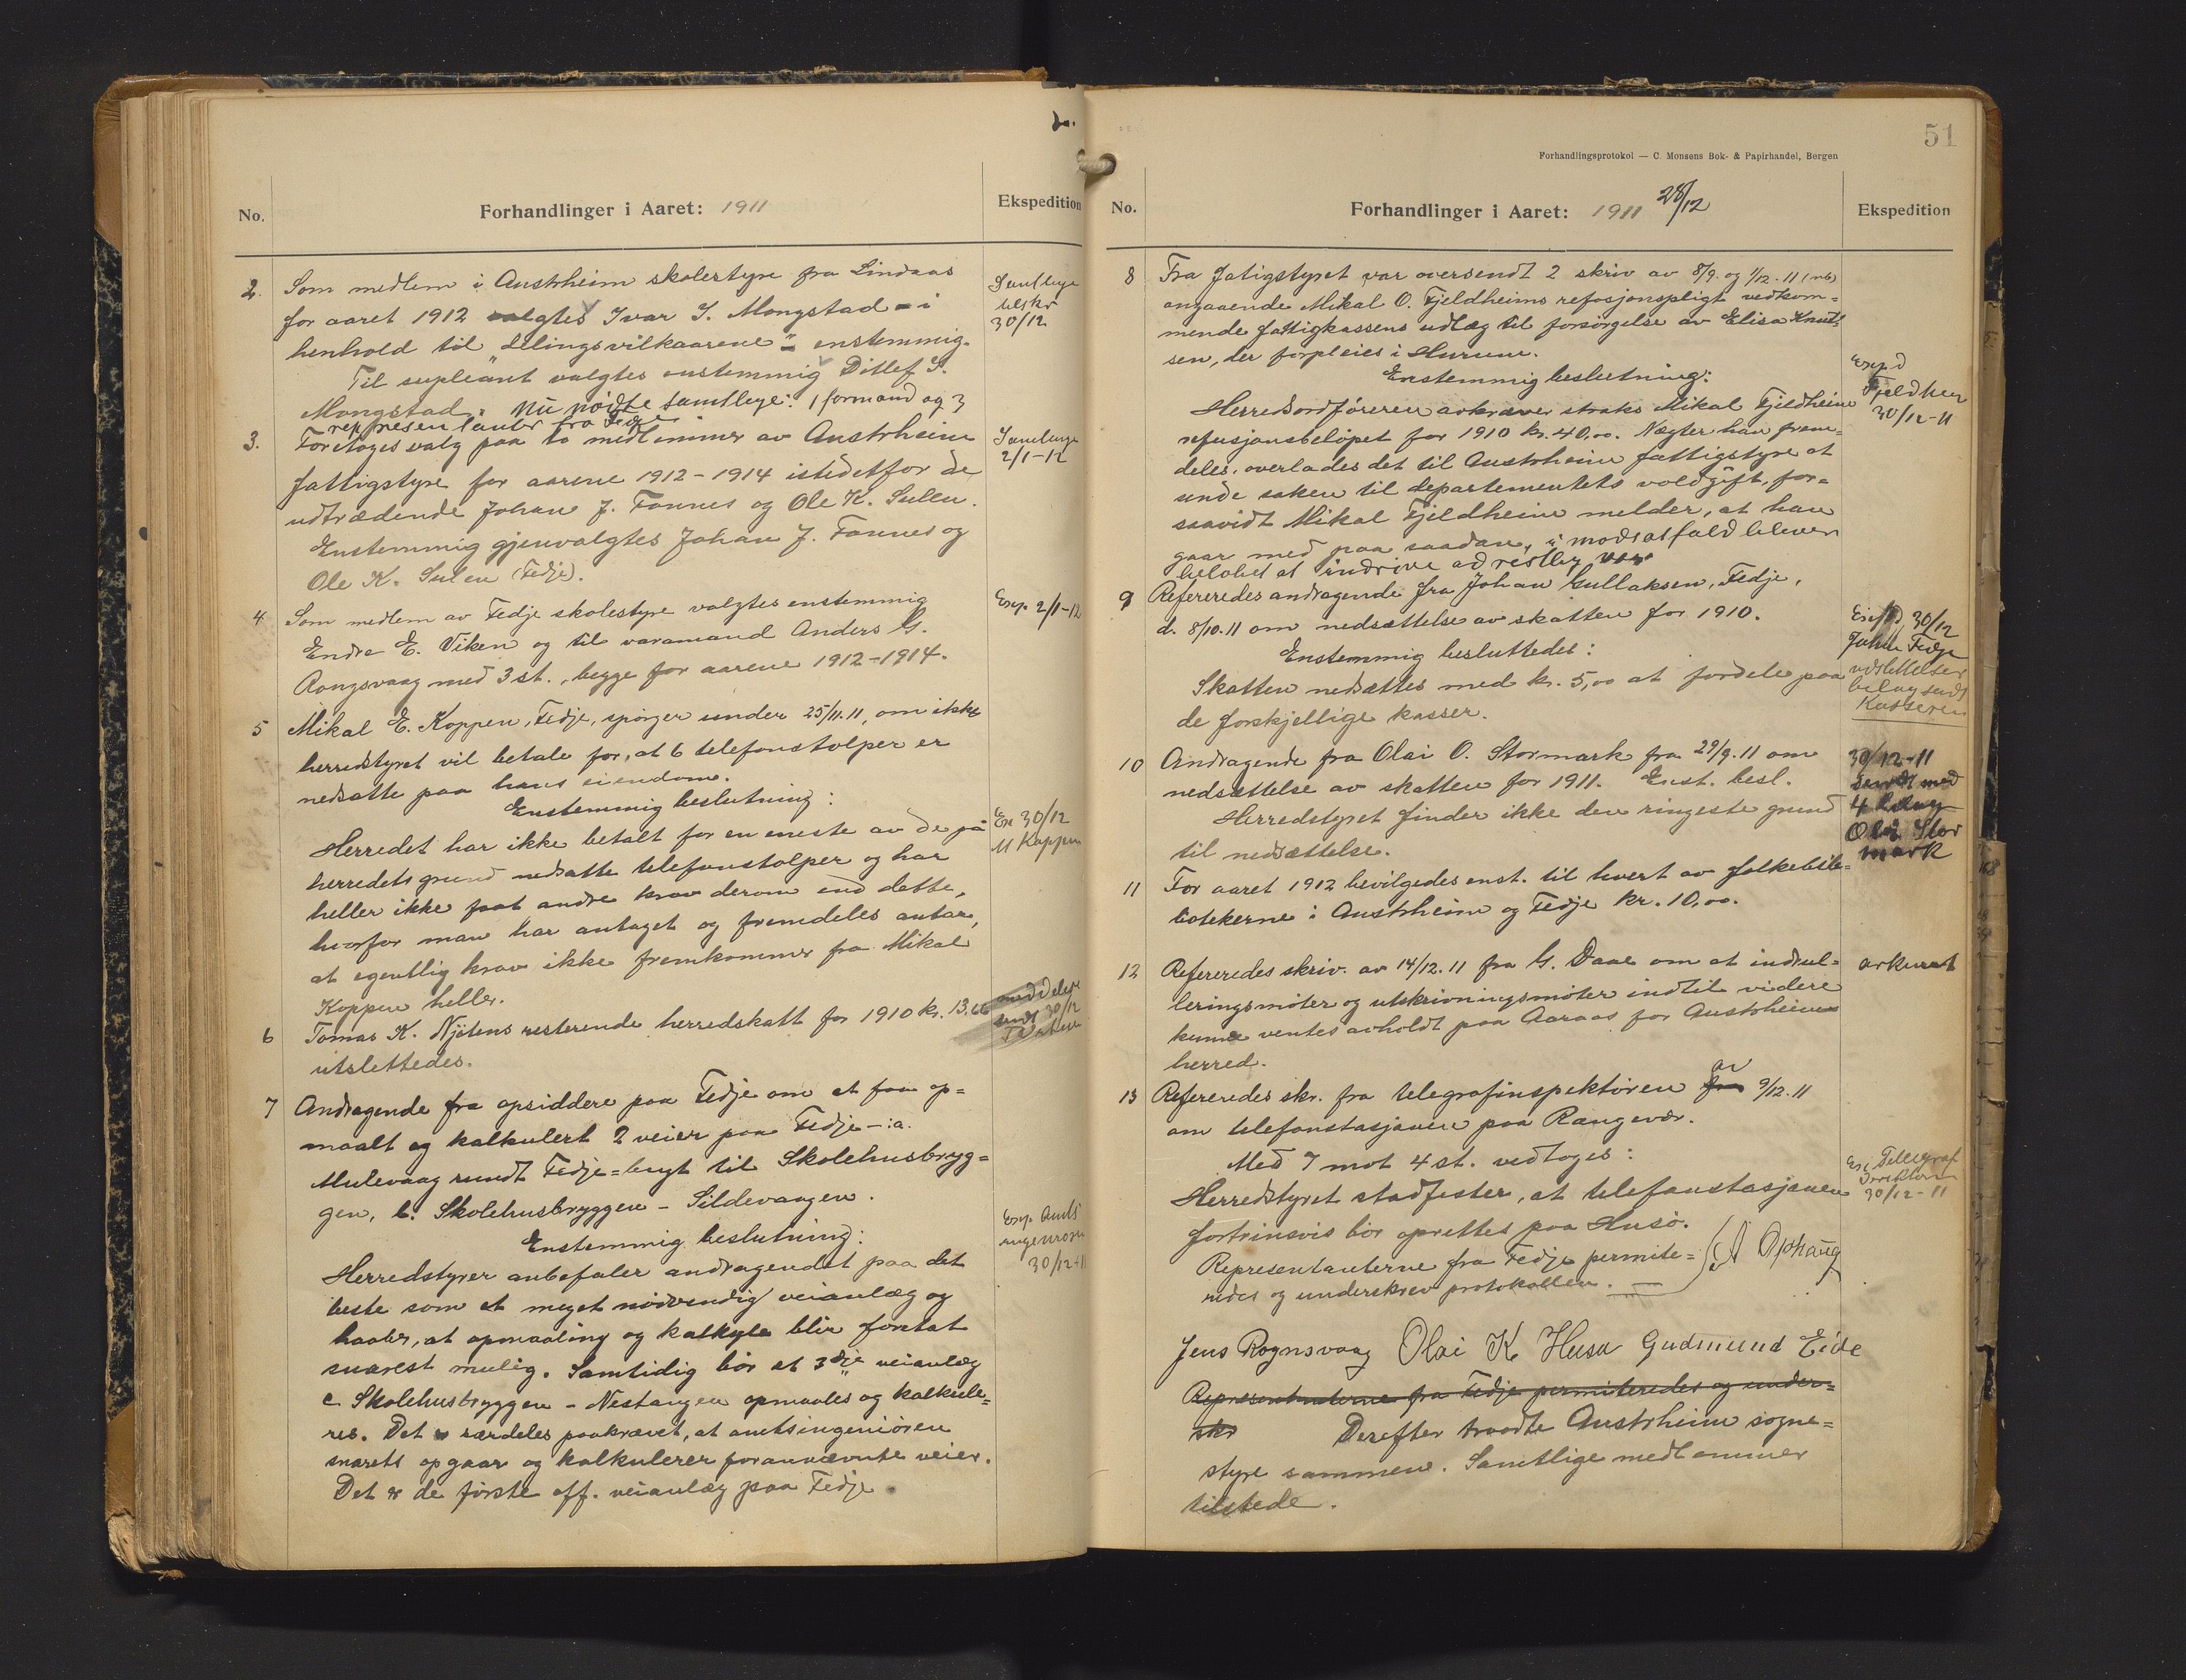 No.
Forhandlinger i Aaret: 1911
Ekspedition
2. Som medlem i Austrheim skolestyre fra Lindaas
for aaret 1912 valgtes Ivar I. Mongstad - i
henhold til "delingsvilkaarene" - enstemmig.
Til supleant valgtes enstemmig Ditlef I.
Mongstad. Nu mødte samtlige: 1 formand og 3
representanter fra Fedje
Samtlige
beskr
30/12
3. Foretoges valg paa to medlemmer av Austrheim
fattigstyre for aarene 1912-1914 istedetfor de
udtrædende Johan J. Fonnes og Ole K. Sulen.
Enstemmig gjenvalgtes Johan J. Fonnes og
Ole K. Sulen (Fedje).
Samtlige
2/1-12
4 Som medlem av Fedje skolestyre valgtes enstemmig
Endre E. Viken og til varamand Anders G.
Rongsvaag med 3 st., begge for aarene 1912-1914.
Exp. 2/1-12
5 Mikal E. Koppen, Fedje, spørger under 25/11.11, om ikke
herredstyret vil betale for, at 6 telefonstolper er
nedsatte paa hans eiendom.
Enstemmig beslutning:
Herredet har ikke betalt for en eneste av de på
herredets grund nedsatte telefonstolper og har
heller ikke faat andre krav derom end dette,
hvorfor man har antaget og fremdeles antar,
at egentlig krav ikke fremkommer fra Mikal
Koppen heller.
Ex 30/12
M Koppen
6 Tomas K. Njøtens resterende herredskatt for 1910 kr. 13,66
utslettedes.
meddelelse
sendt 30/12
7 Andragende fra opsiddere paa Fedje om at faa op=
maalt og kalkulert 2 veier paa Fedje -: a.
Mulevaag rundt Fedje=bugt til Skolehusbryg=
gen, b. Skolehusbryggen - Sildevaagen.
Enstemmig beslutning:
Herredstyrer anbefaler andragendet paa det
beste som et meget nødvendig veianlæg og
haaber, at opmaaling og kalkyle blir foretat
snarest mulig. Samtidig bør et 3dje veianlæg
c. Skolehusbryggen - Nestangen opmaales og kalkule=
res. Det er særdeles paakrævet, at amtsingeniøren
snarest opgaar og kalkulerer forannævnte veier.
Det er de første off. veianlæg paa Fedje.
Exp. Amts
ingeniøren
30/12-11
51
Forhandlingsprotokol — C. Monsens Bok- & Papirhandel, Bergen
No.
Forhandlinger i Aaret: 1911 28/12
Ekspedition
8 Fra fatigstyret var oversendt 2 skriv av 8/9. og 1/12-11 (nb)
angaaende Mikal O. Fjeldheims refusjonspligt vedkom=
mende fattigkassens udlæg til forsørgelse av Elisa Knut=
sen, der forpleies i Hurum.
Enstemmig beslutning:
Herredsordføreren avkræver straks Mikal Fjeldheim
refusjonsbeløpet for 1910 kr. 40,00. Nægter han frem=
deles, overlades det til Austrheim fattigstyre at
sende saken til departementets voldgift, for=
saavidt Mikal Fjeldheim melder, at han
gaar med paa saadan, i modsatfald blever
beløbet at inddrive ad restlig vei.
Exp.d
Fjeldheim
30/12-11
9 Refereredes andragende fra Johan Gullaksen, Fedje,
d. 8/10.11 om nedsættelse av skatten for 1910.
Enstemmig besluttedes:
Skatten nedsættes med kr. 5,00 at fordele paa
de forskjellige kasser.
Exp.d 30/12
Johan Fedje
udslettelses
bilag sendt
Kasseren
10 Andragende fra Olai O. Stormark fra 29/9.11 om
nedsættelse av skatten for 1911. Enst. besl.
Herredstyret finder ikke den ringeste grund
til nedsættelse.
30/12-11
sendt med
4 bilag
Olai Stor
mark
11 For aaret 1912 bevilgedes enst. til hvert av folkebib=
liotekerne i Austrheim og Fedje kr. 10,00.
12 Refereredes skriv. av 14/12.11 fra G. Daae om at indrul=
leringsmøter og utskrivningsmøter indtil videre
kunne ventes avholdt paa Aaraas for Austrheim
herred.
arkivert
13 Refereredes skr. fra telegrafinspektøren fra av 9/12.11
om telefonstasjonen paa Rongevær.
Med 7 mot 4 st. vedtoges:
Herredstyret stadfester, at telefonstasjonen
fortrinsvis bør oprettes paa Husø.
Representanterne fra Fedje permite=
redes og underskrev protokollen. — A Ophaug
Ex. Telegraf
Direktøren
30/12-11
Jens Rognsvaag Olai K Husa Gudmund Eide
Representanterne fra Fedje permiteredes og under=
skr Derefter traadte Austrheim sogne=
styre sammen. Samtlige medlemmer
tilstede.